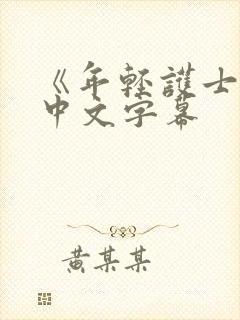 《年輕護士
中文字幕
黄某某